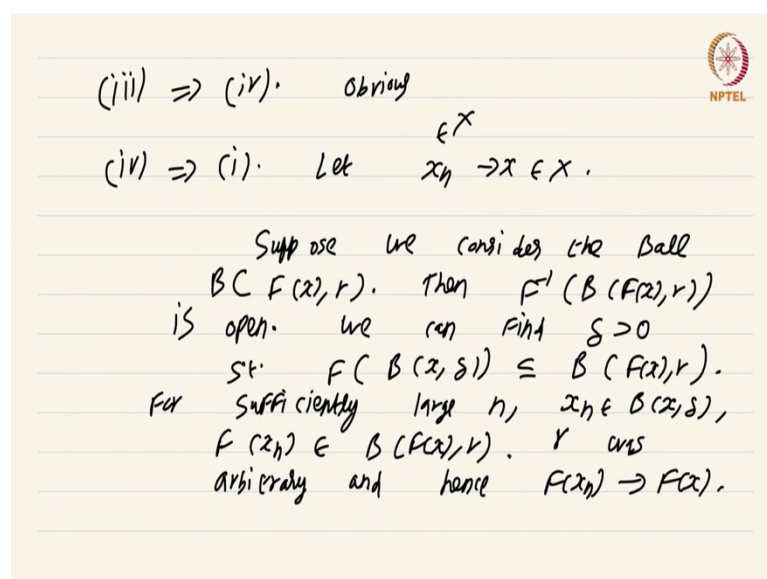 NPTEL
(iii) => (iv). Obvious
∈ X
(iv) => (i). Let xn → x ∈ X.
Suppose we consider the Ball
B( F(x), r). Then F⁻¹(B(F(x), r))
is open. We can find δ > 0
st. F( B(x, δ)) ⊆ B( F(x), r).
For sufficiently large n, xn ∈ B(x, δ),
F(xn) ∈ B(F(x), r). r was
arbitrary and hence F(xn) → F(x).